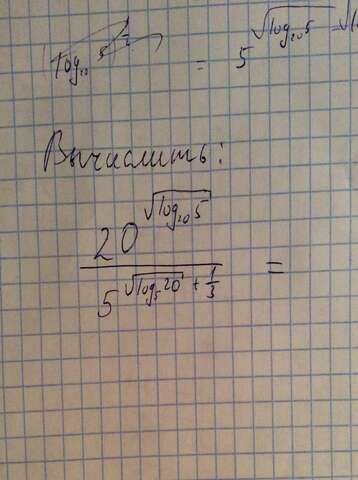 = 5^{\sqrt{\log_{20} 5}}
Вычислить:
\frac{20^{\sqrt{\log_{20} 5}}}{5^{\sqrt{\log_{5} 20} + \frac{1}{3}}} =